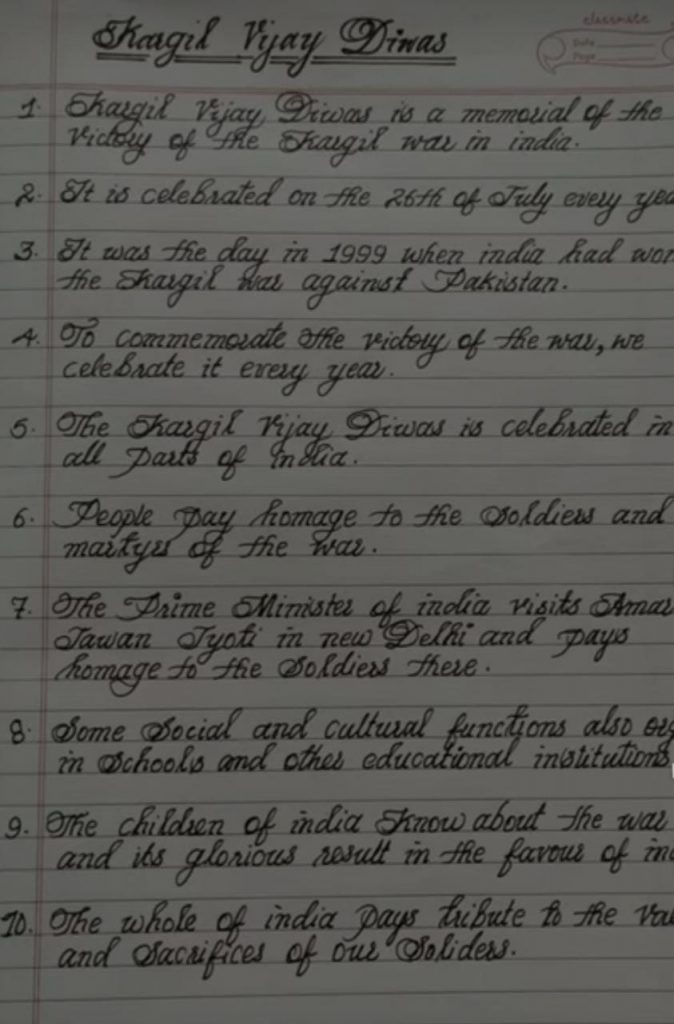 classmate
Date
Page
Kargil Vijay Diwas
1. Kargil Vijay Diwas is a memorial of the
victory of the Kargil war in india.
2. It is celebrated on the 26th of July every yea
3. It was the day in 1999 when india had won
the Kargil war against Pakistan.
4. To commemorate the victory of the war, we
celebrate it every year.
5. The Kargil Vijay Diwas is celebrated in
all parts of India.
6. People pay homage to the soldiers and
martyrs of the war.
7. The Prime Minister of india visits Amar
Jawan Jyoti in new Delhi and pays
homage to the soldiers there.
8. Some social and cultural functions also org
in schools and other educational institutions
9. The children of india know about the war
and its glorious result in the favour of in
10. The whole of india pays tribute to the va
and sacrifices of our Soliders.